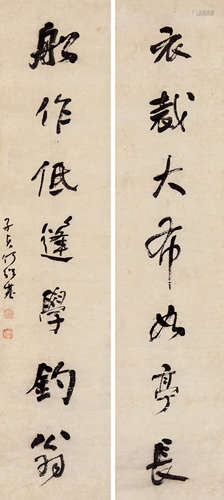 衣裁大布如亭長
船作低篷學釣翁
子貞何紹基